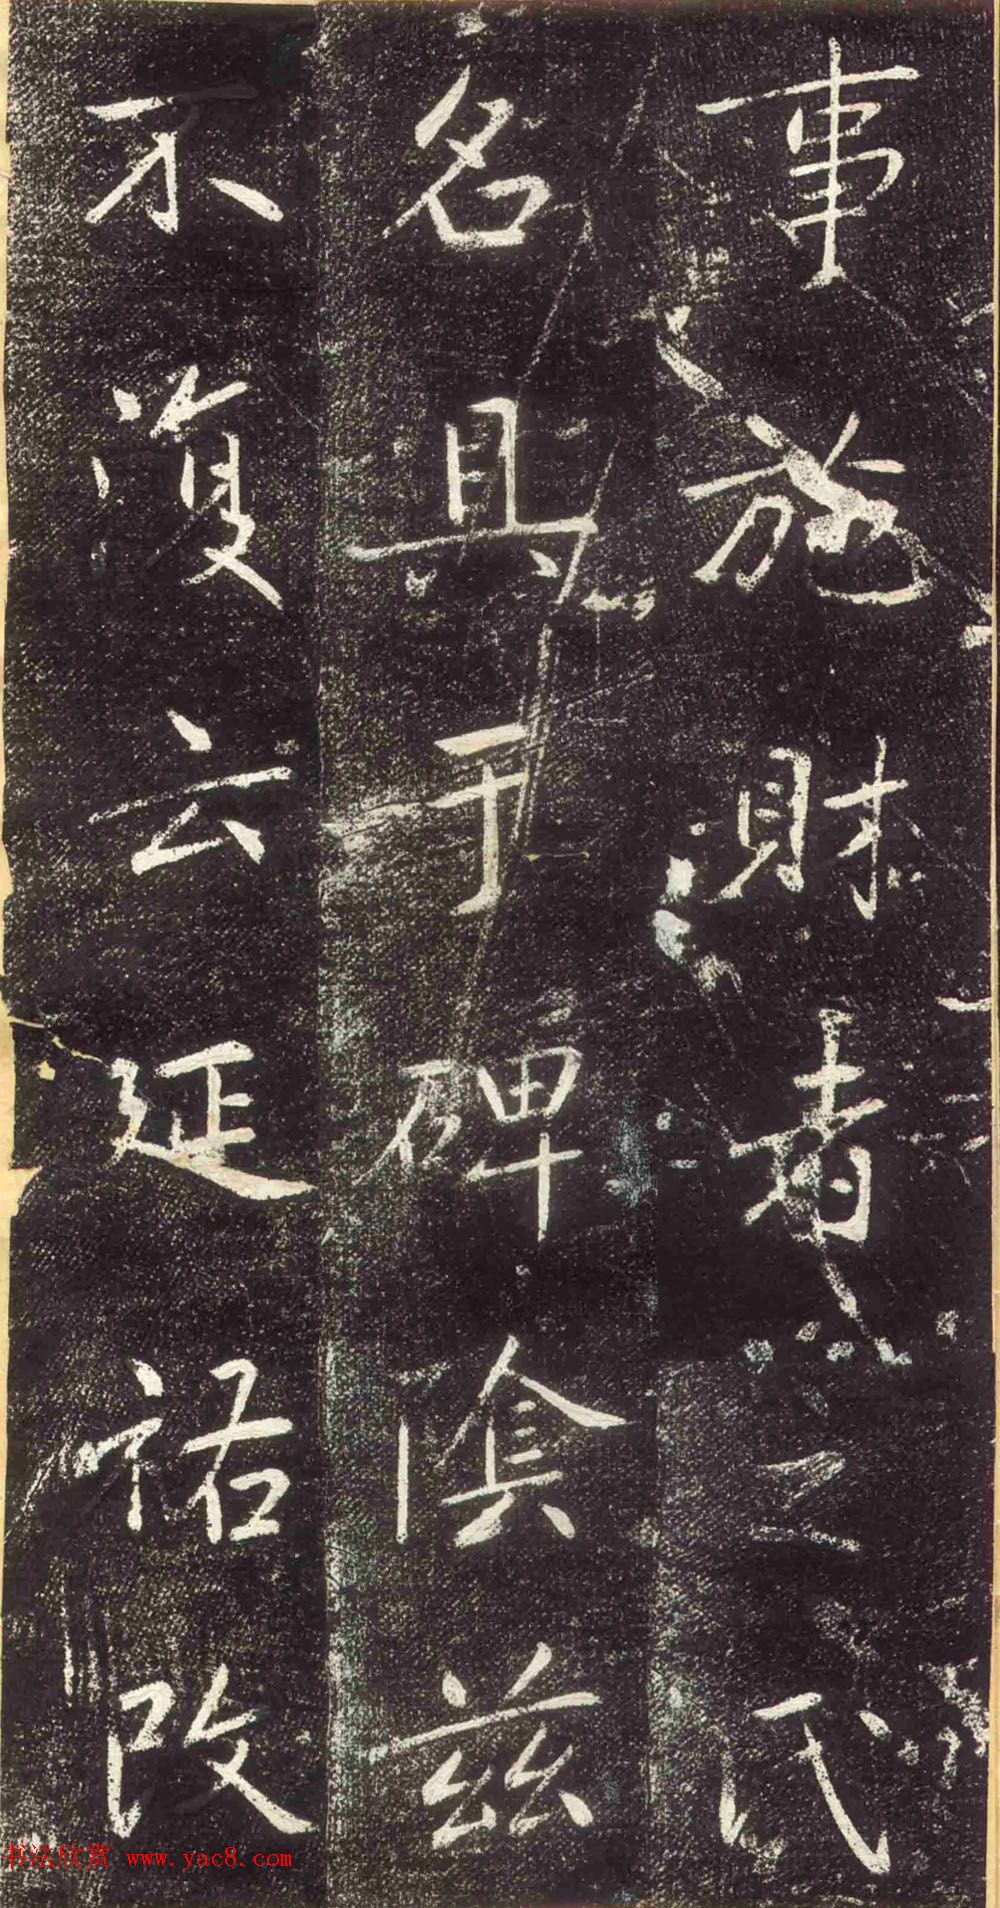 事施財者之氏
名具于碑陰茲
不復云延祐改
书法欣赏 www.yac8.com